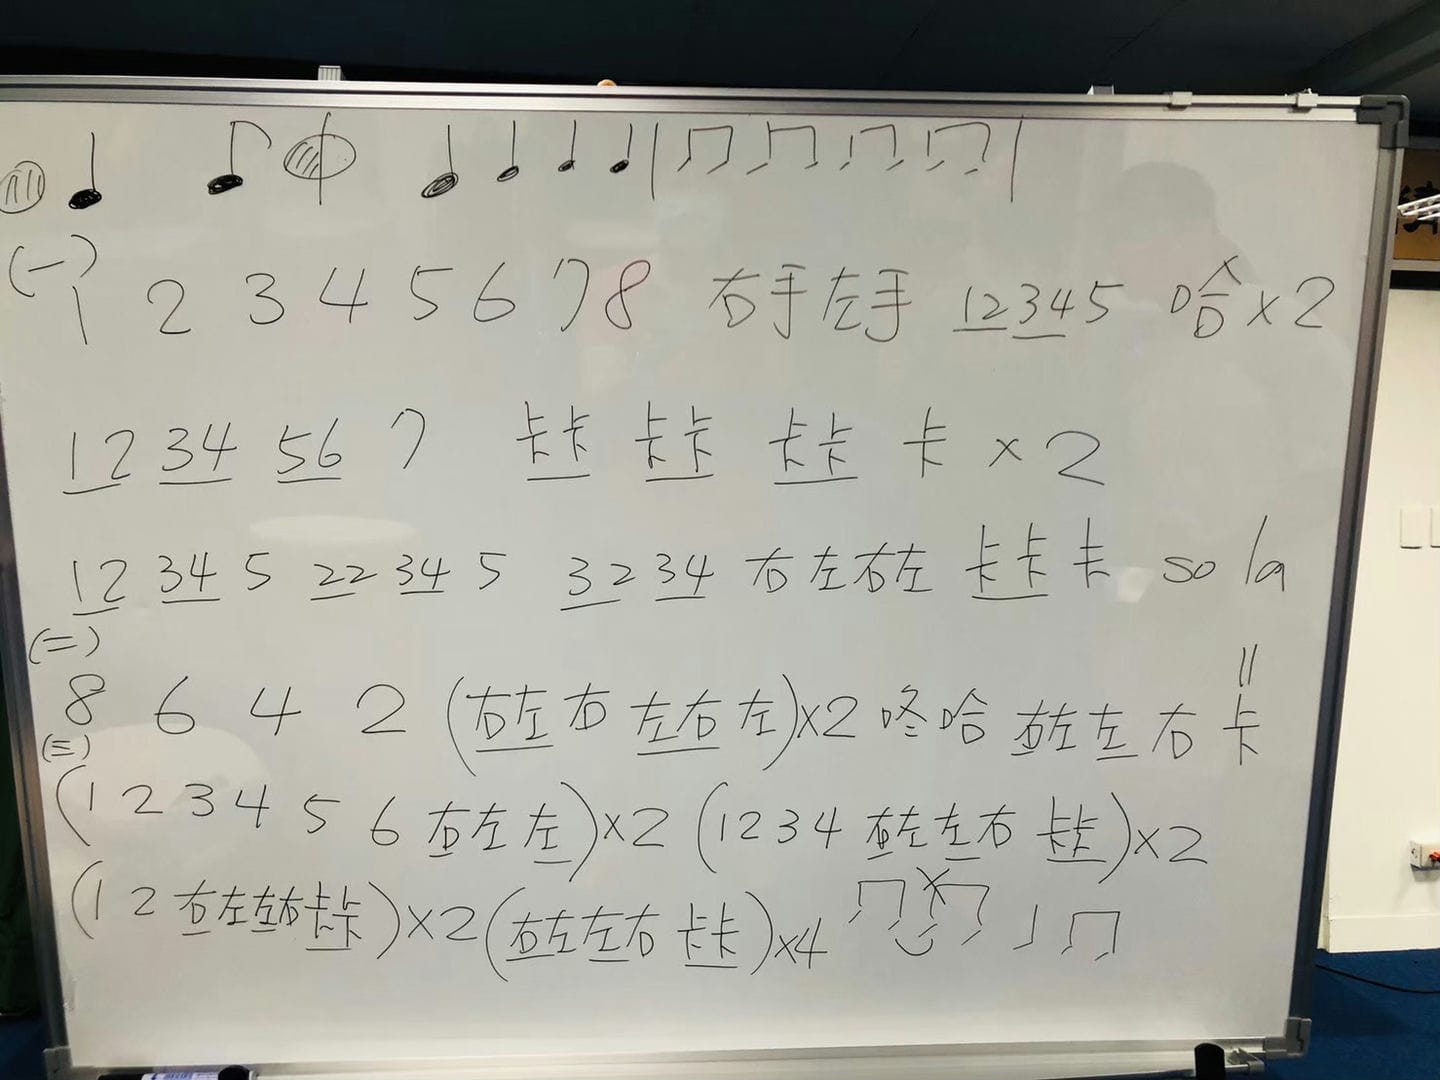 (一)
1 2 3 4 5 6 7 8 右手左手 12345 哈 x 2
12 34 56 7 卡卡 卡卡 卡卡 卡 x 2
12 34 5 22 34 5 32 34 右左右左 卡卡卡 so la
(二)
8 6 4 2 (右左右左右左)x2 咚哈 右左左右卡
(三)
(1 2 3 4 5 6 右左左)x2 (1234 右左左右 卡卡)x2
(1 2 右左左右卡卡)x2 (右左左右 卡卡)x4